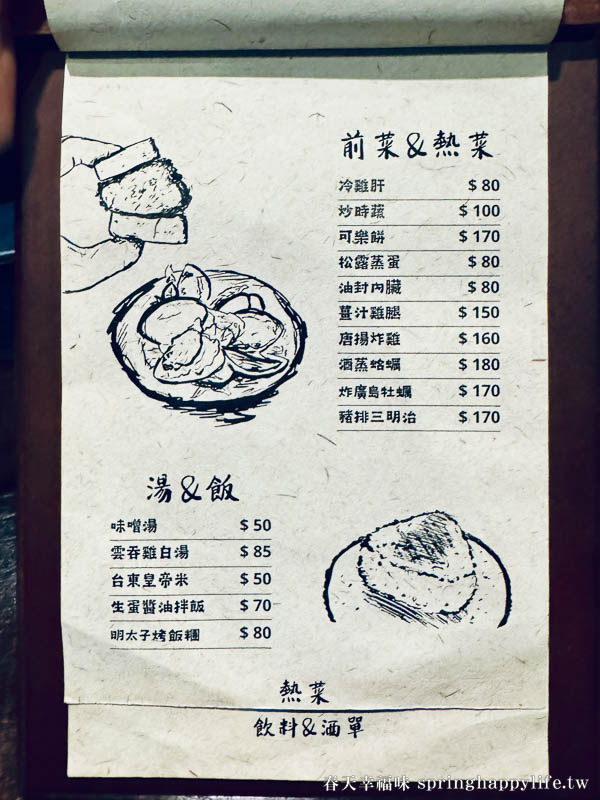 前菜&熱菜
冷雞肝 $ 80
炒時蔬 $ 100
可樂餅 $ 170
松露蒸蛋 $ 80
油封內臟 $ 80
薑汁雞腿 $ 150
唐揚炸雞 $ 160
酒蒸蛤蠣 $ 180
炸廣島牡蠣 $ 170
豬排三明治 $ 170
湯&飯
味噌湯 $ 50
雲吞雞白湯 $ 85
台東皇帝米 $ 50
生蛋醬油拌飯 $ 70
明太子烤飯糰 $ 80
熱菜
飲料&酒單
春天幸福味 springhappylife.tw